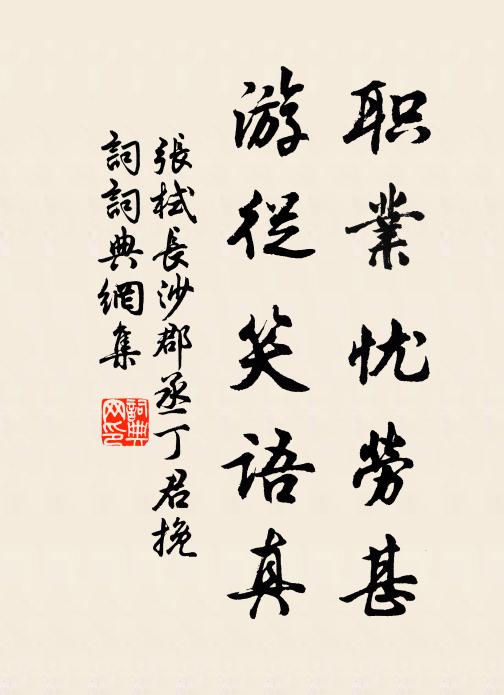 职業忧勞甚
游從笑语真
張栻長沙郡丞丁君挽
詞詞典網集
詞典网印